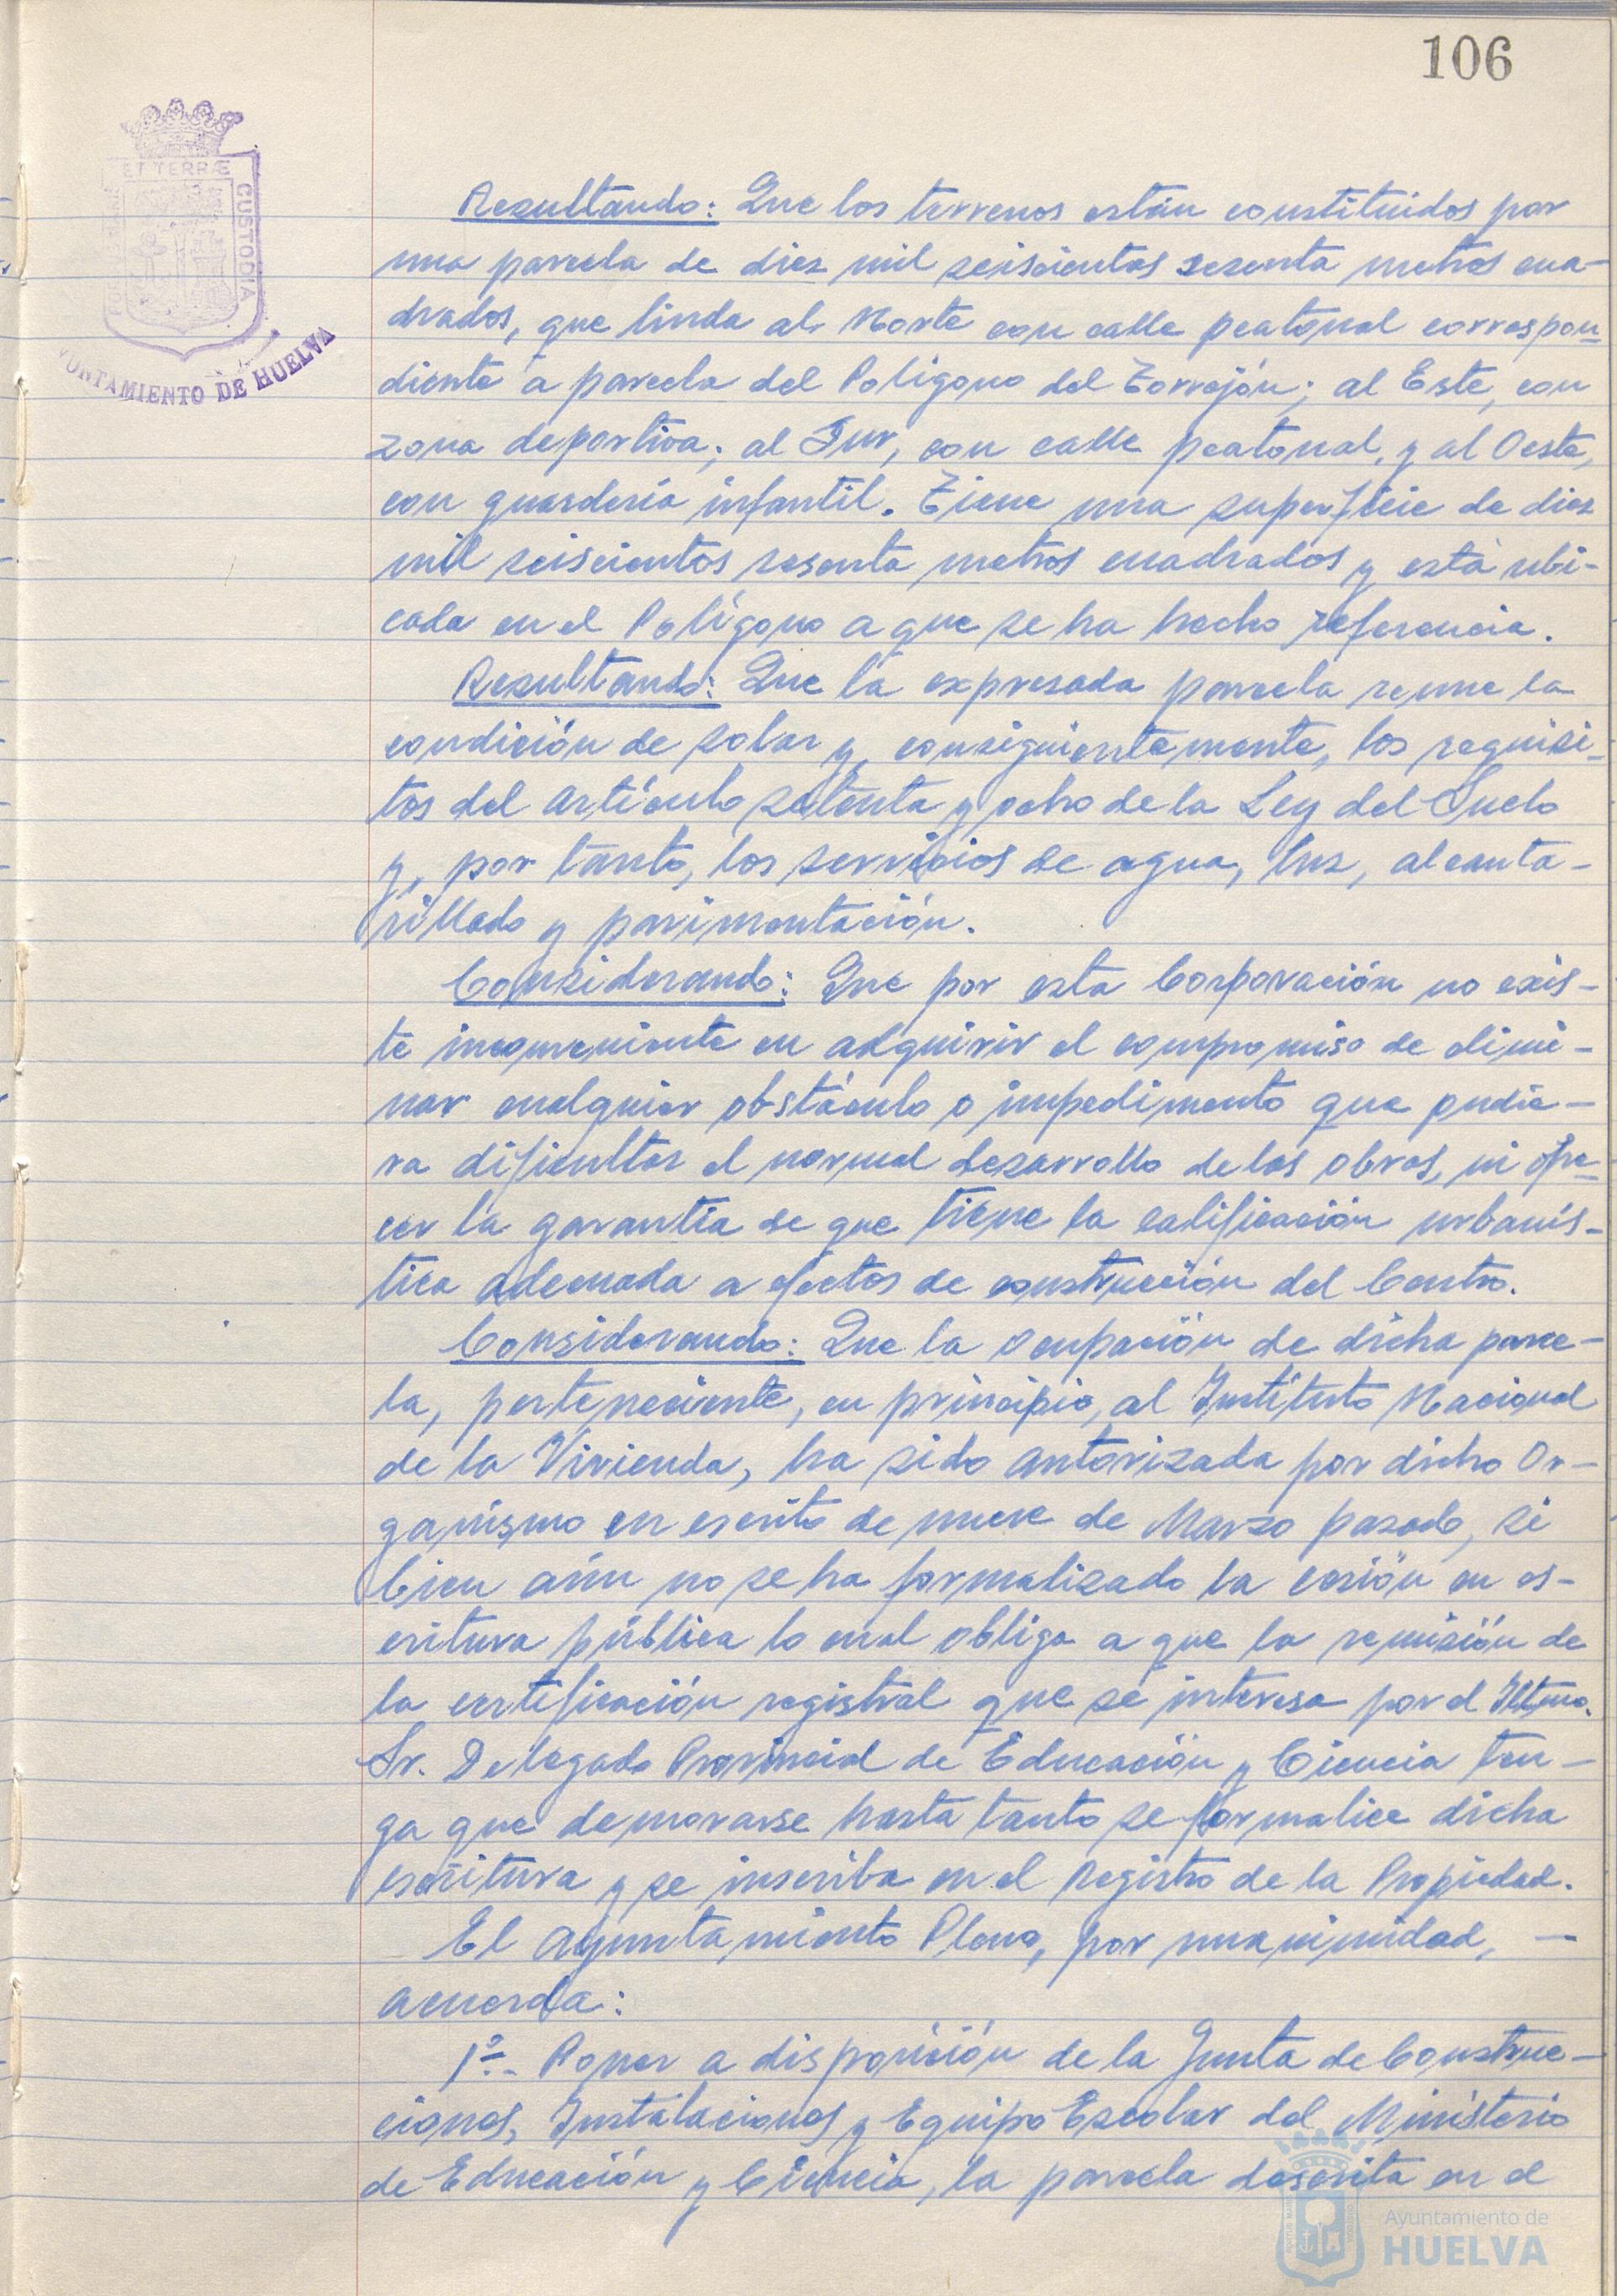 106
ET TERRÆ
CUSTODIA
AYUNTAMIENTO DE HUELVA
Resultando: Que los terrenos están constituidos por
una parcela de diez mil seiscientos sesenta metros cua-
drados, que linda al Norte con calle peatonal correspon-
diente a parcela del Polígono del Torrejón; al Este, con
zona deportiva; al Sur, con calle peatonal, y al Oeste,
con guardería infantil. Tiene una superficie de diez
mil seiscientos sesenta metros cuadrados y está ubi-
cada en el Polígono a que se ha hecho referencia.
Resultando: Que la expresada parcela reune la
condición de solar y, consiguientemente, los requisi-
tos del artículo setenta y ocho de la Ley del Suelo
y, por tanto, los servicios de agua, luz, alcanta-
rillado y pavimentación.
Considerando: Que por esta Corporación no exis-
te inconveniente en adquirir el compromiso de elimi-
nar cualquier obstáculo o impedimento que pudie-
ra dificultar el normal desarrollo de las obras, ni ofre-
cer la garantía de que tiene la calificación urbanís-
tica adecuada a efectos de construcción del Centro.
Considerando: Que la ocupación de dicha parce-
la, perteneciente, en principio, al Instituto Nacional
de la Vivienda, ha sido autorizada por dicho Or-
ganismo en escrito de nueve de Marzo pasado, si
bien aún no se ha formalizado la cesión en es-
critura pública lo cual obliga a que la remisión de
la certificación registral que se interesa por el Iltmo.
Sr. Delegado Provincial de Educación y Ciencia ten-
ga que demorarse hasta tanto se formalice dicha
escritura y se inscriba en el Registro de la Propiedad.
El Ayuntamiento Pleno, por unanimidad, —
acuerda:
1º.- Poner a disposición de la Junta de Construc-
ciones, Instalaciones y Equipo Escolar del Ministerio
de Educación y Ciencia, la parcela descrita en el
Ayuntamiento de
HUELVA